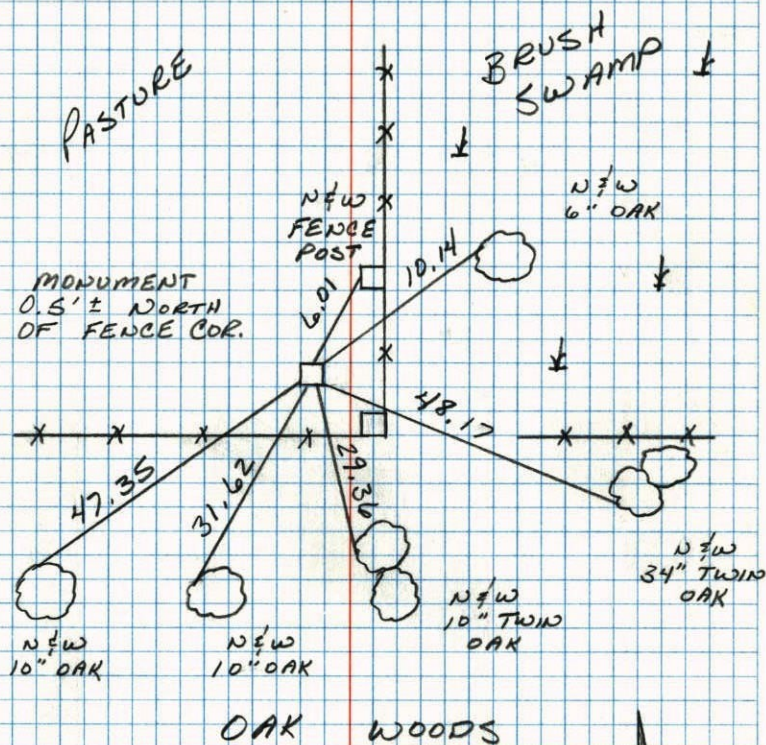 PASTURE
BRUSH
SWAMP
N & W
6" OAK
N & W
FENCE
POST
10.14
6.01
MONUMENT
0.5' ± NORTH
OF FENCE COR.
48.17
47.35
31.62
29.36
N & W
34" TWIN
OAK
N & W
10" TWIN
OAK
N & W
10" OAK
N & W
10" OAK
OAK WOODS